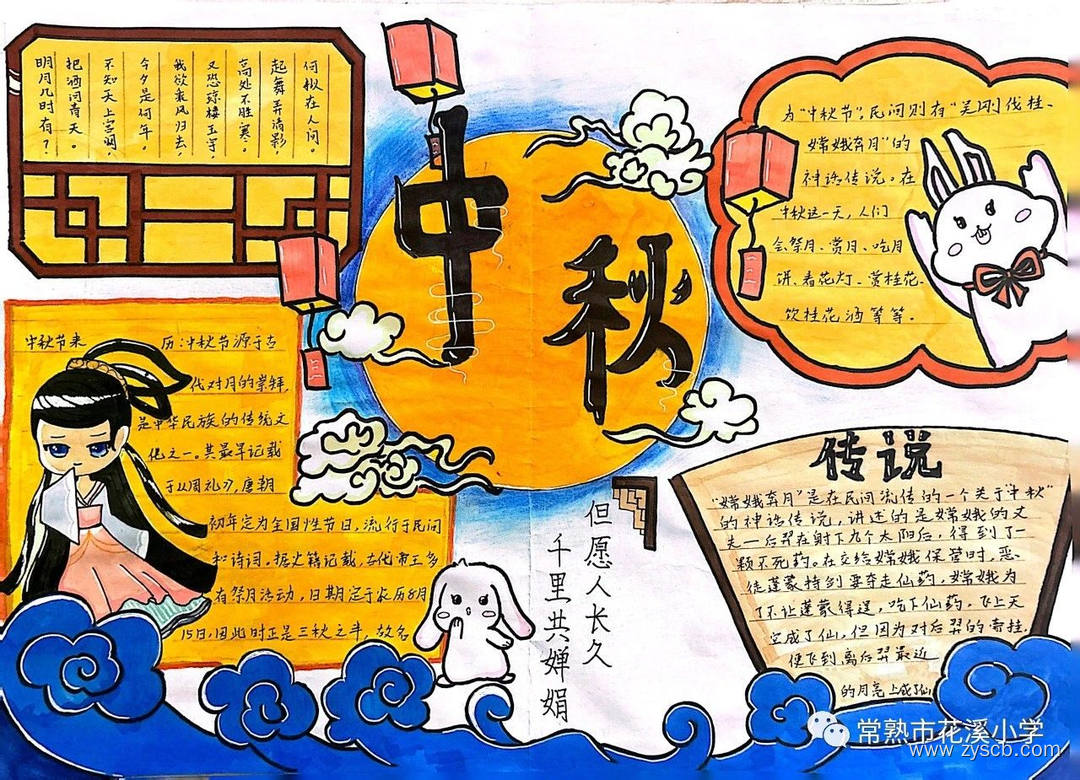 明月几时有？
把酒问青天。
不知天上宫阙，
今夕是何年。
我欲乘风归去，
又恐琼楼玉宇，
高处不胜寒。
起舞弄清影，
何似在人间。
中秋
为"中秋节"，民间则有"吴刚伐桂、
嫦娥奔月"的
神话传说。在
中秋这一天，人们
会祭月、赏月、吃月
饼、看花灯、赏桂花、
饮桂花酒等等。
中秋节来历：中秋节源于古
代对月的崇拜，
是中华民族的传统文
化之一。其最早记载
于《周礼》，唐朝
初年定为全国性节日，流行于民间
和诗词。据史籍记载，古代帝王多
有祭月活动，日期定于农历8月
15日，因此时正是三秋之半，故名
但愿人长久
千里共婵娟
传说
"嫦娥奔月"是在民间流传的一个关于"中秋"
的神话传说，讲述的是嫦娥的丈
夫一后羿在射下九个太阳后，得到了一
颗不死药。在交给嫦娥保管时，恶
徒蓬蒙持剑要夺走仙药，嫦娥为
了不让蓬蒙得逞，吃下仙药，飞上天
空成了仙。但因为对后羿的寄挂，
便飞到离后羿最近
的月亮上成了仙
常熟市花溪小学
www.zyscb.com